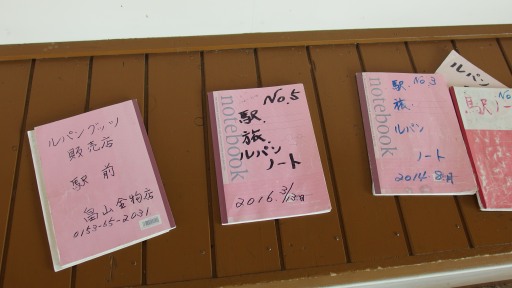 ルパングッツ
販売店
駅前
畠山金物店
0153-65-2031
notebook
No.5
駅.
旅.
ルパン
ノート
2016.3/13日
notebook
No.3
駅.
旅.
ルパン
ノート
2014.8月
ルパン
駅ノー
No